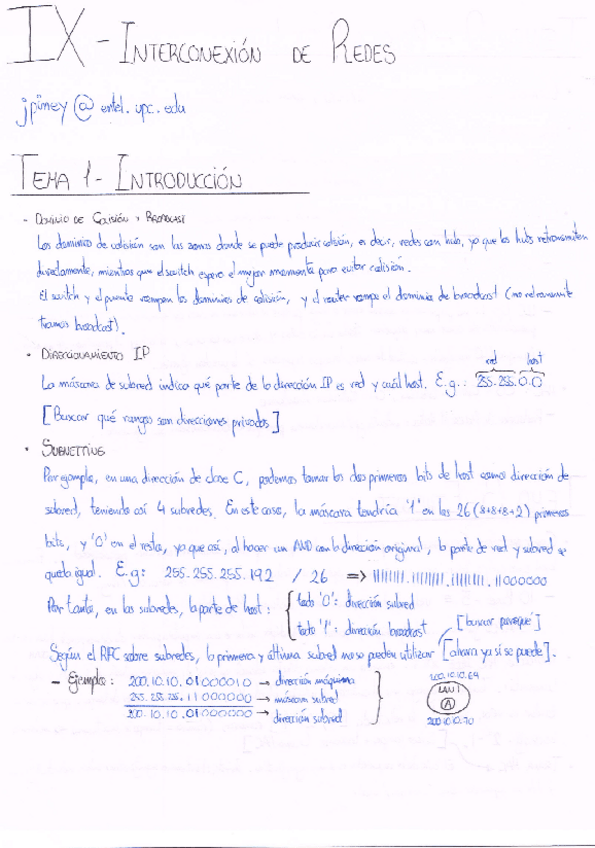 IX - INTERCONEXIÓN DE REDES
jpiney@entel.upc.edu
TEMA 1 - INTRODUCCIÓN
- DOMINIO DE COLISIÓN Y BROADCAST
Los dominios de colisión son las zonas donde se puede producir colisión, es decir, redes con hub, ya que los hubs retransmiten
directamente, mientras que el switch espera el mejor momento para evitar colisión.
El switch y el puente rompen los dominios de colisión, y el router rompe el dominio de broadcast (no retransmite
tramas broadcast).
· DIRECCIONAMIENTO IP
red host
La máscara de subred indica qué parte de la dirección IP es red y cuál host. E.g.: 255.255.0.0
[Buscar qué rangos son direcciones privadas]
· SUBNETTING
Por ejemplo, en una dirección de clase C, podemos tomar los dos primeros bits de host como dirección de
subred, teniendo así 4 subredes. En este caso, la máscara tendría '1' en los 26 (8+8+8+2) primeros
bits, y '0' en el resto, ya que así, al hacer un AND con la dirección original, la parte de red y subred se
queda igual. E.g: 255.255.255.192 / 26 => 11111111.11111111.11111111.11000000
Por tanto, en las subredes, la parte de host: { todo '0': dirección subred
todo '1': dirección broadcast [buscar porque]
Según el RFC sobre subredes, la primera y última subred no se pueden utilizar [ahora ya sí se puede].
- Ejemplo: 200.10.10.01000010 → dirección máquina
255.255.255.11000000 → máscara subred
200.10.10.01000000 → dirección subred
200.10.10.64
LAN 1
A
200.10.10.70